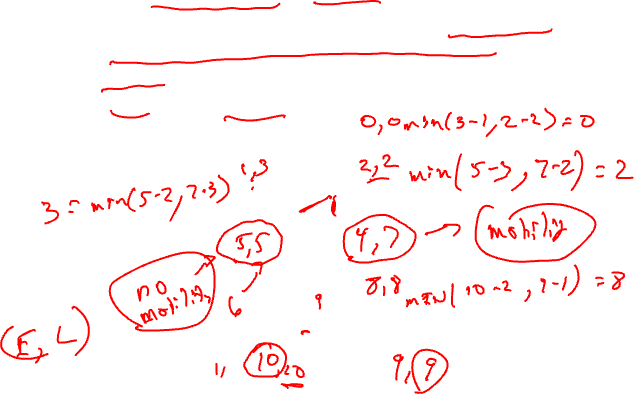 0,0 min(3-1,2-2)=0
2,2 min(5-3,7-2)=2
3=min(5-2,7-3)
5,5
4,7
motility
no
motility
6
8,8 min(10-2,9-1)=8
(E,L)
10,20
9,9